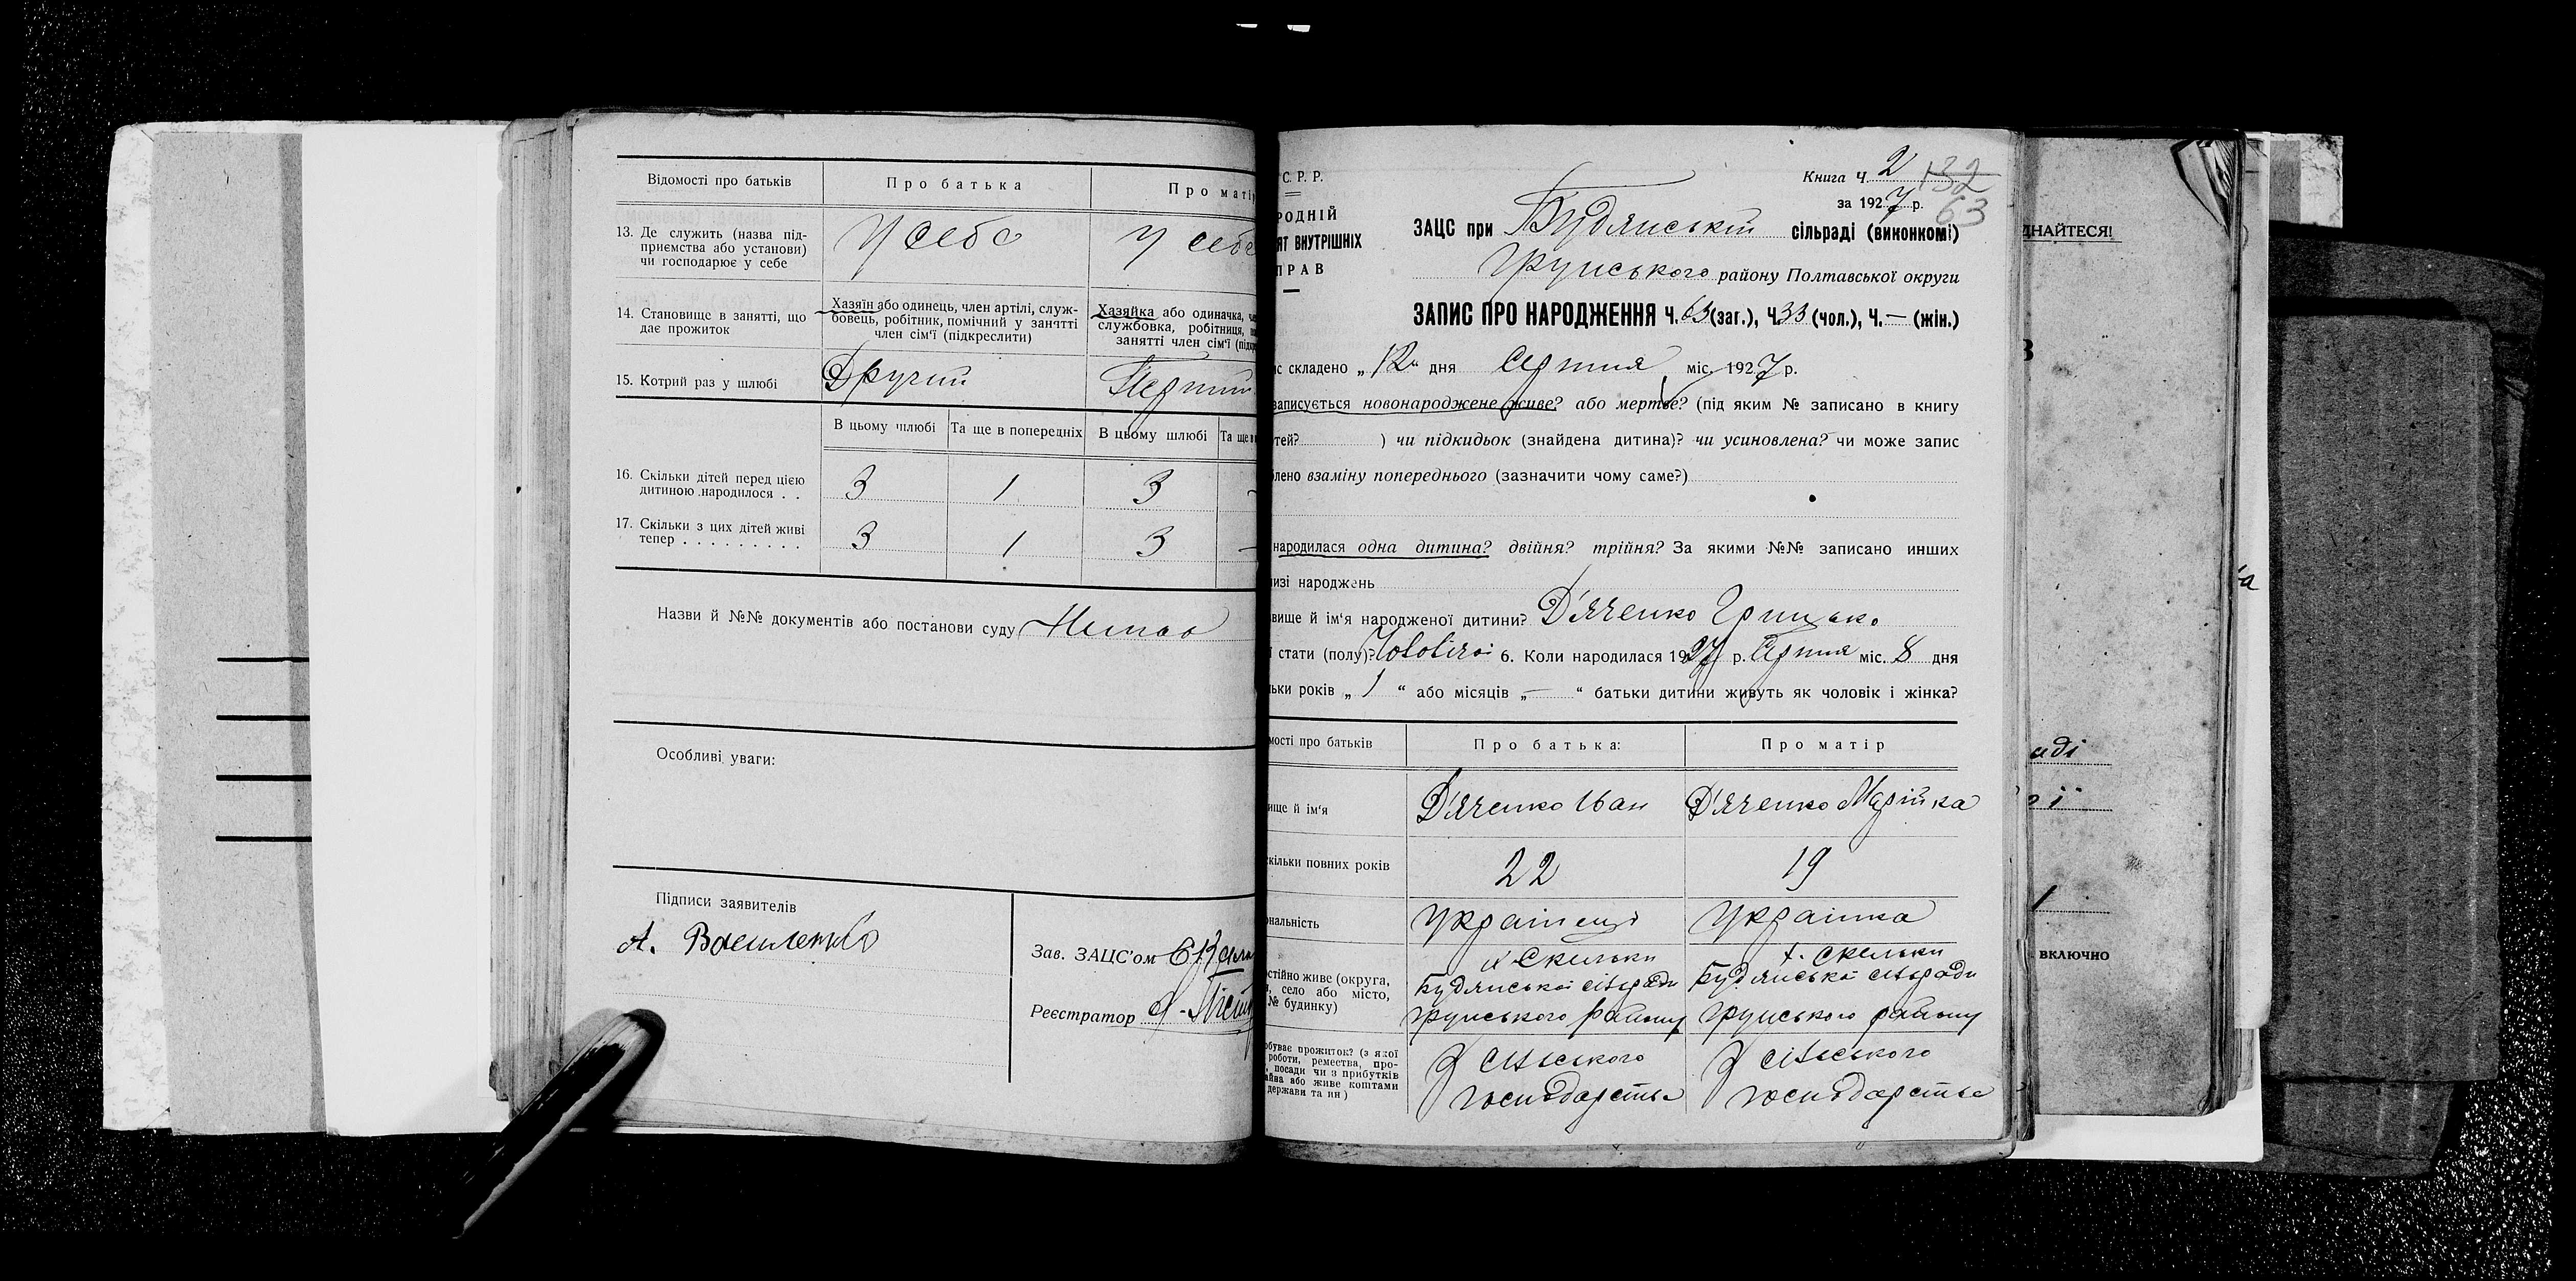 Відомості про батьків
Про батька
Про матір
13. Де служить (назва під-
приємства або установи)
чи господарює у себе
У себе
У себе
14. Становище в занятті, що
дає прожиток
Хазяїн або одинець, член артілі, служ-
бовець, робітник, помічний у занятті
член сім'ї (підкреслити)
Хазяйка або одиначка,
службовка, робітниця,
занятті член сім'ї
15. Котрий раз у шлюбі
Другий
Перший
В цьому шлюбі
Та ще в попередніх
В цьому шлюбі
Та ще в
16. Скільки дітей перед цією
дитиною народилося . .
3
1
3
17. Скільки з цих дітей живі
тепер . . . . . . . . .
3
1
3
—
Назви й №№ документів або постанови суду Немає
Особливі уваги:
Підписи заявителів
А. Василенко
Зав. ЗАЦС'ом
Реєстратор
С. Р. Р.
РОДНІЙ
ЯТ ВНУТРІШНІХ
ПРАВ
Книга ч. 2
132
за 1927 р.
63
ЗАЦС при Будянській сільраді (виконкомі)
Грунського району Полтавської округи
ЗАПИС ПРО НАРОДЖЕННЯ Ч. 63 (заг.), Ч. 33 (чол.), Ч. — (жін.)
с складено „12“ дня Серпня міс. 1927 р.
записується новонароджене живе? або мертве? (під яким № записано в книгу
тей? ) чи підкидьок (знайдена дитина)? чи усиновлена? чи може запис
блено взаміну попереднього (зазначити чому саме?)
народилася одна дитина? двійня? трійня? За якими №№ записано инших
изі народжень
вище й ім'я народженої дитини? Д'яченко Грицько
ї стати (полу)? Чоловічої 6. Коли народилася 1927 р. Серпня міс. 8 дня
льки років „ 1 “ або місяців „ — “ батьки дитини живуть як чоловік і жінка?
мості про батьків
Про батька:
Про матір
вище й ім'я
Д'яченко Іван
Д'яченко Марійка
скільки повних років
22
19
ональність
Українець
Українка
остійно живе (округа,
н, село або місто,
№ будинку)
х. Скельки
Будянської сільради
Грунського району
х. Скельки
Будянської сільради
Грунського району
обуває прожиток? (з якої
роботи, ремества, про-
, посади чи з прибутків
айна або живе коштами
держави та ин)
З сільського
господарства
З сільського
господарства
ДНАЙТЕСЯ!
аді
ії
включно